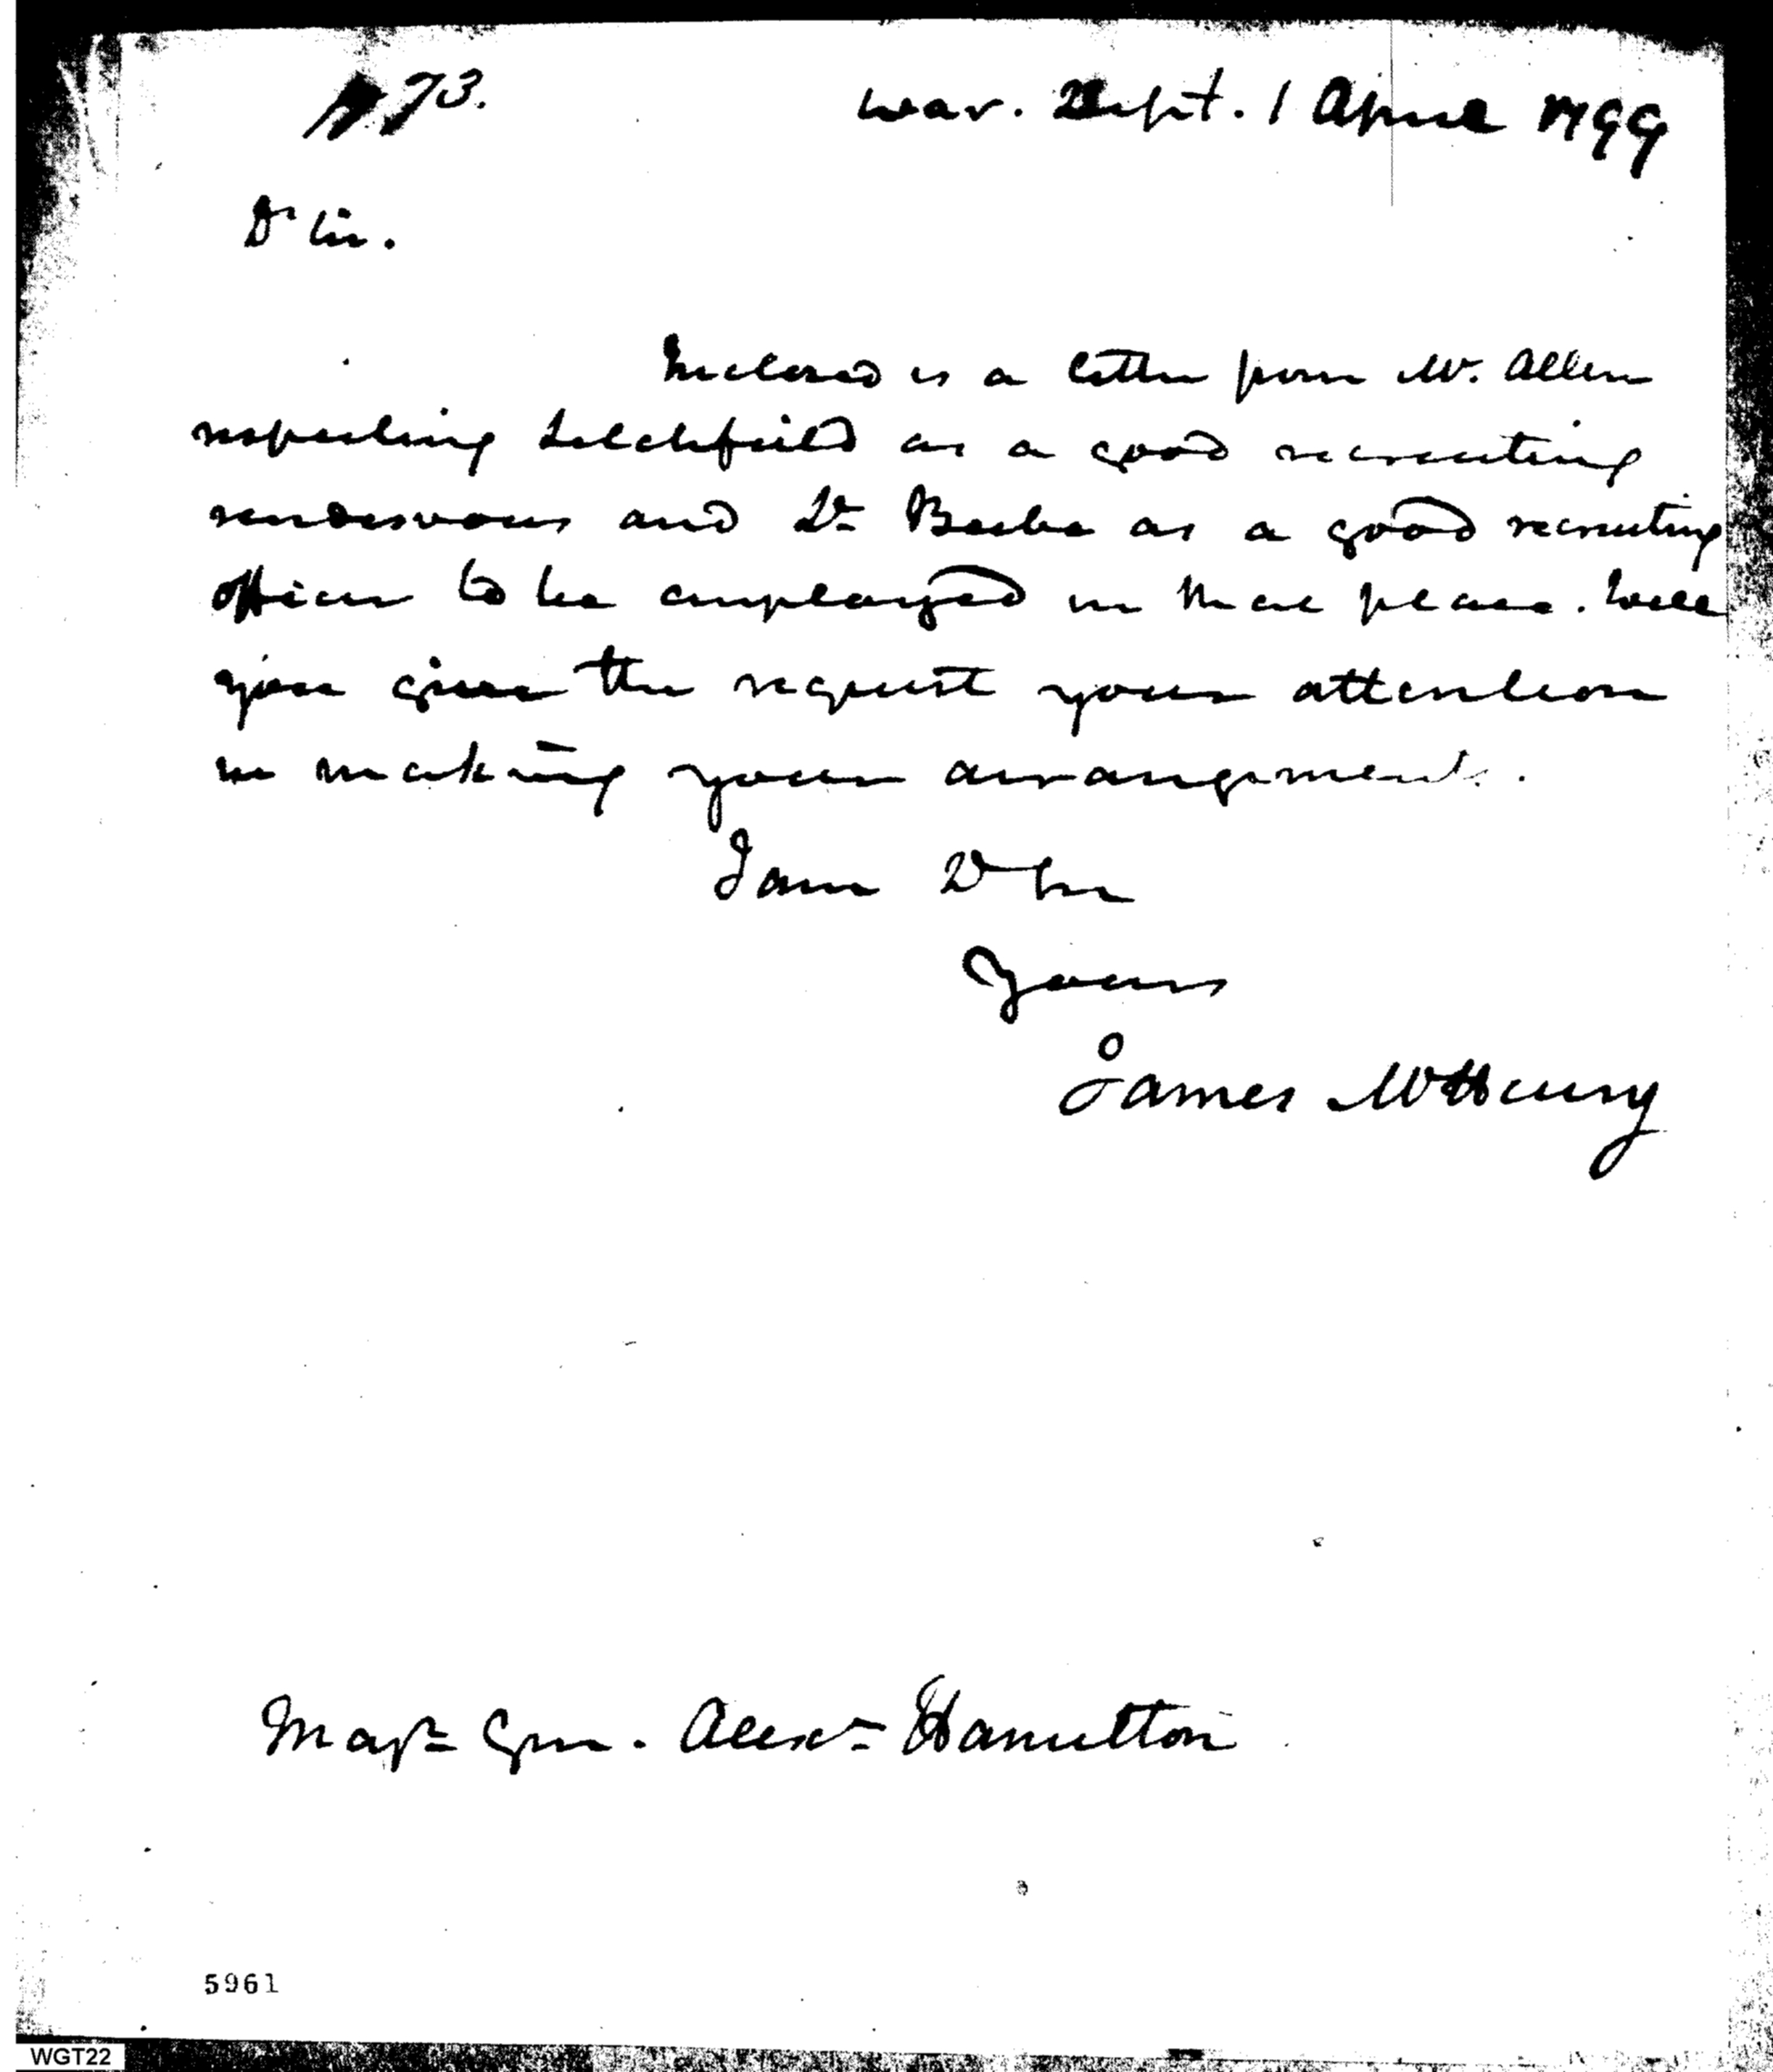 73.
War. Dept. 1 April 1799
Dr Sir.
Inclosed is a letter from Mr. Allen
respecting Litchfield as a good recruiting
rendesvous and Dr Beebe as a good recruiting
officer to be employed in that place. Will
you give the request your attention
in making your arrangements.
I am Dr Sir
Yours
James McHenry
Majr Gen. Alexr Hamilton
5961
WGT22